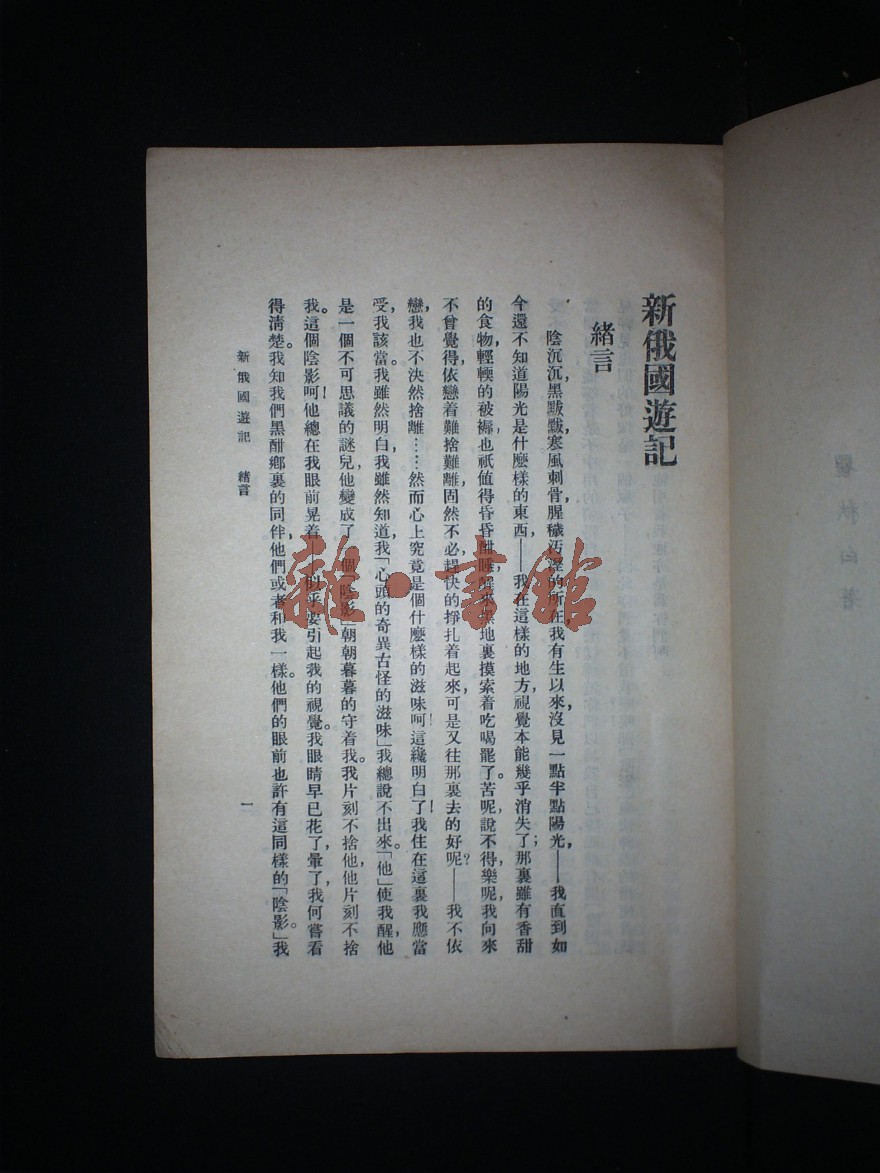 瞿秋白著
新俄國遊記
緒言
陰沉沉,黑黢黢,寒風刺骨,腥穢汚溼的所在,我有生以來,沒見一點半點陽光,——我直到如
今還不知道陽光是什麽樣的東西——我在這樣的地方,視覺本能幾乎消失了;那裏雖有香甜
的食物,輕輭的被褥,也祇値得昏昏酣睡,醒來黑地裏摸索着吃喝罷了。苦呢,說不得,樂呢,我向來
不曾覺得,依戀着難捨難離,固然不必,趕快的掙扎着起來,可是又往那裏去的好呢?——我不依
戀,我也不決然捨離……然而心上究竟是個什麽樣的滋味呵!這纔明白了!我住在這裏我應當
受,我該當。我雖然明白,我雖然知道,我「心頭的奇異古怪的滋味」我總說不出來。「他」使我醒,他
是一個不可思議的謎兒,他變成了一個「陰影」朝朝暮暮的守着我。我片刻不捨他,他片刻不捨
我。這個陰影呵!他總在我眼前晃着——似乎要引起我的視覺。我眼睛早已花了,暈了,我何嘗看
得淸楚。我知我們黑酣鄉裏的同伴,他們或者和我一樣。他們的眼前也許有這同樣的「陰影」。我
新俄國遊記 緒言 一
雜·書館